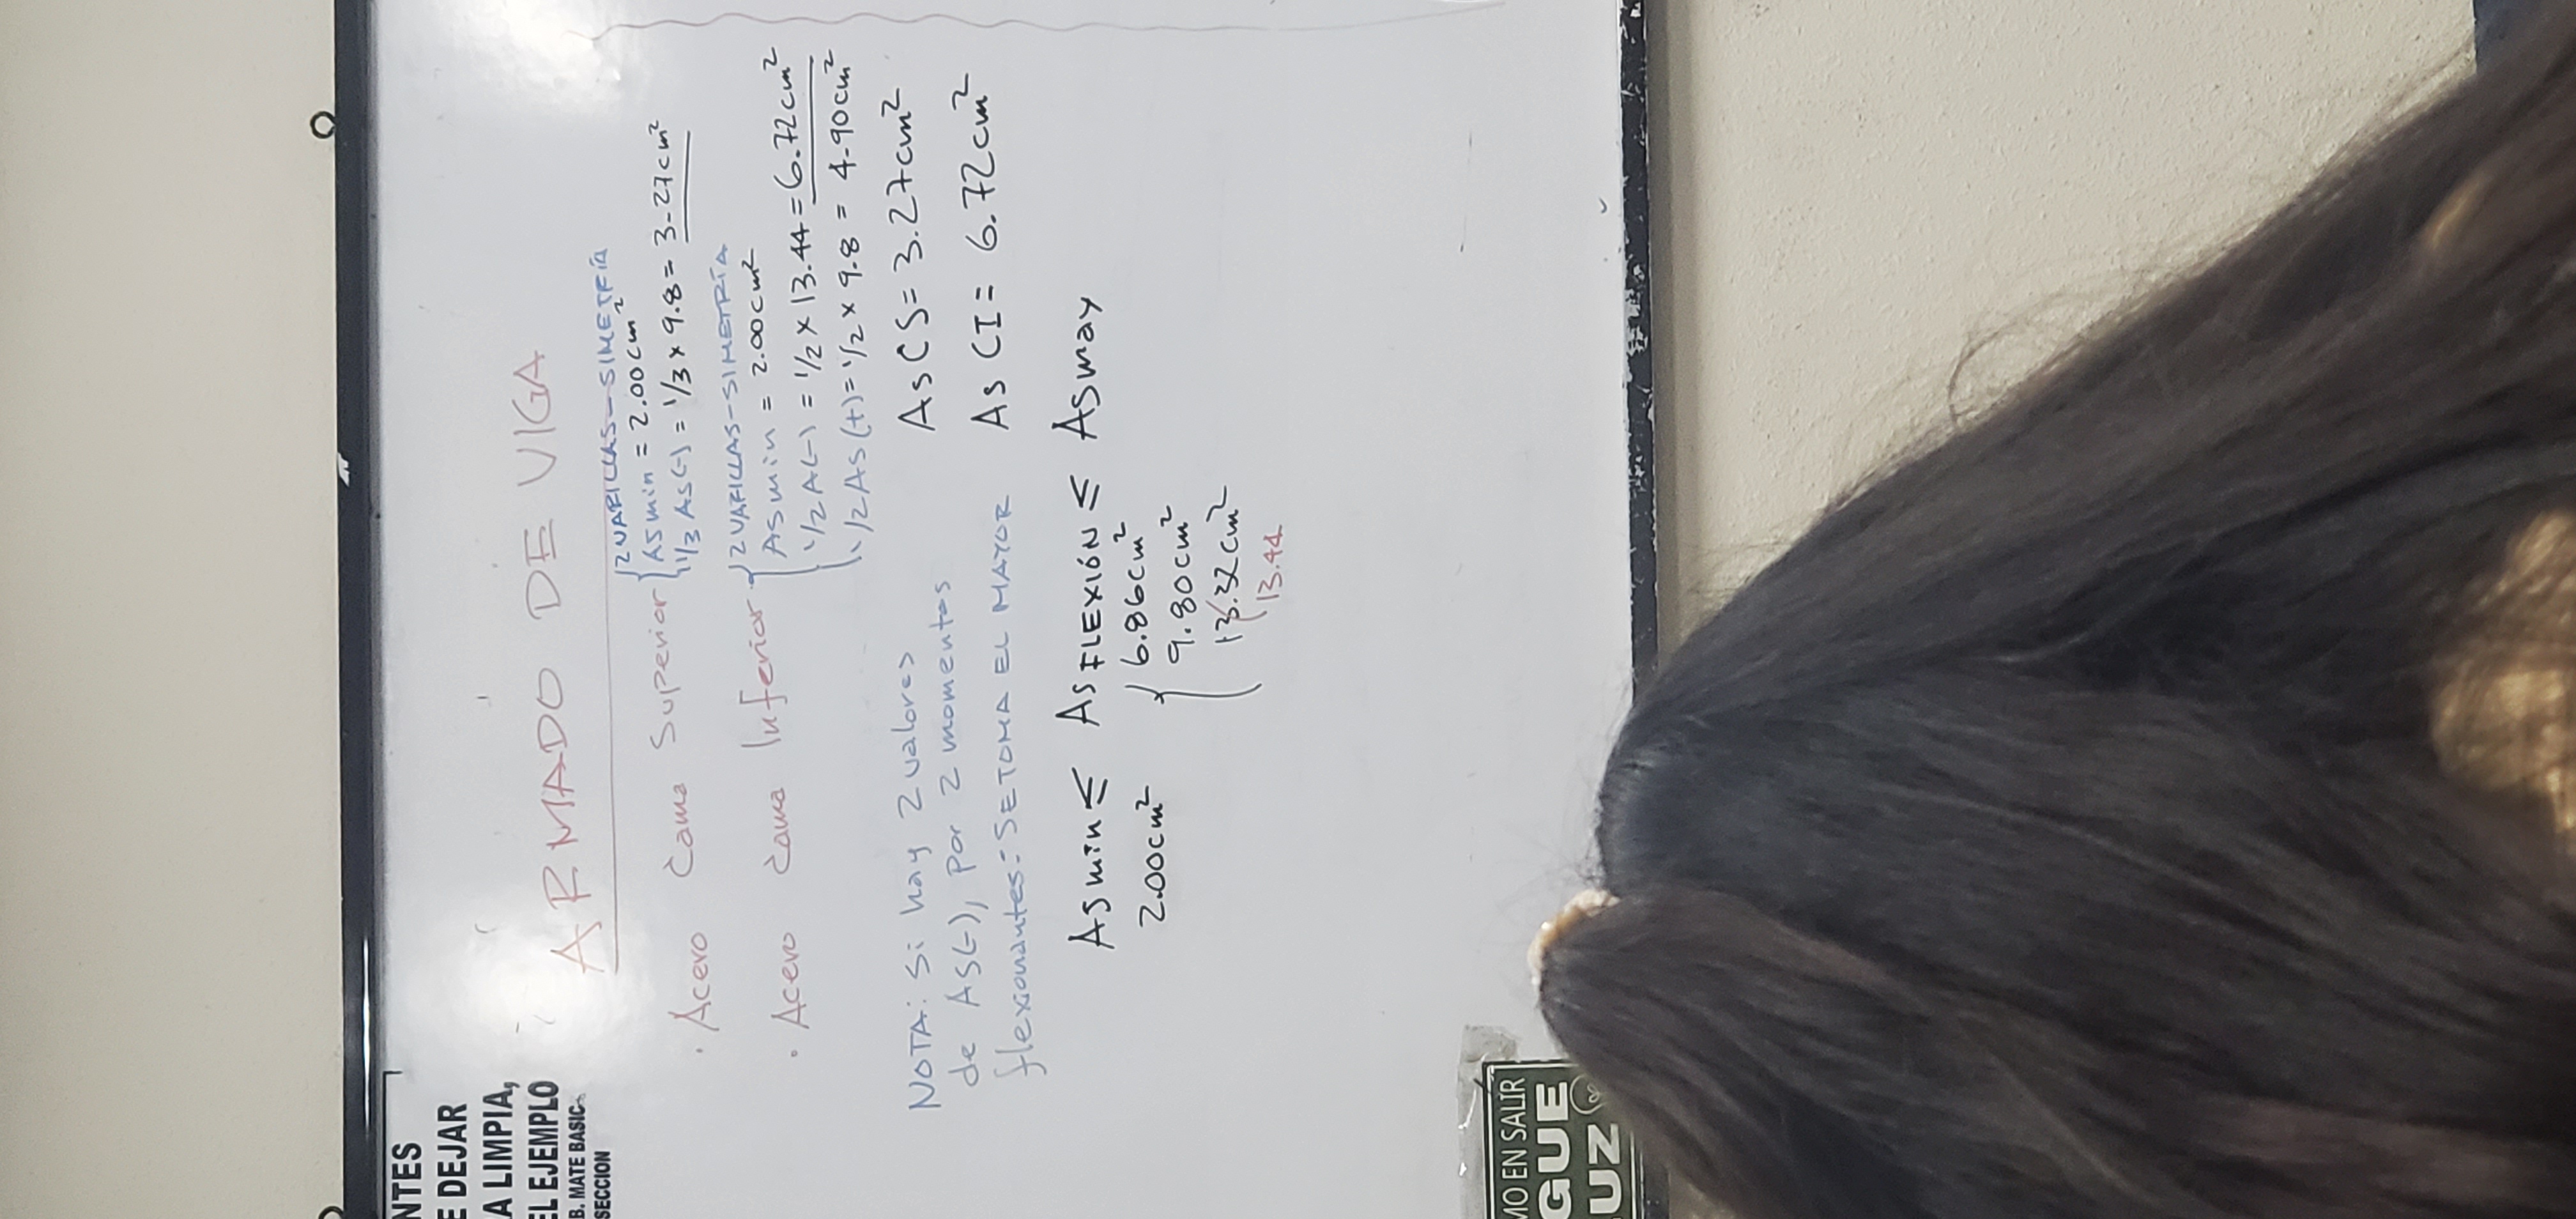 NTES
E DEJAR
A LIMPIA,
EL EJEMPLO
B. MATE BASIC
SECCION
ARMADO DE VIGA
• Acero Cama Superior
2 VARILLAS - SIMETRÍA
ASmin = 2.00 cm²
1/3 As(-) = 1/3 x 9.8 = 3.27 cm²
• Acero Cama Inferior
2 VARILLAS - SIMETRÍA
ASmin = 2.00 cm²
1/2 A(-) = 1/2 x 13.44 = 6.72 cm²
1/2 AS (+) = 1/2 x 9.8 = 4.90 cm²
NOTA: Si hay 2 valores
de AS(-), por 2 momentos
flexionantes: SE TOMA EL MAYOR
As CS = 3.27 cm²
As CI = 6.72 cm²
ASmin ≤ AS FLEXIÓN ≤ ASmay
2.00 cm²
6.86 cm²
9.80 cm²
13.32 cm²
13.44
MO EN SALIR
GUE
UZ